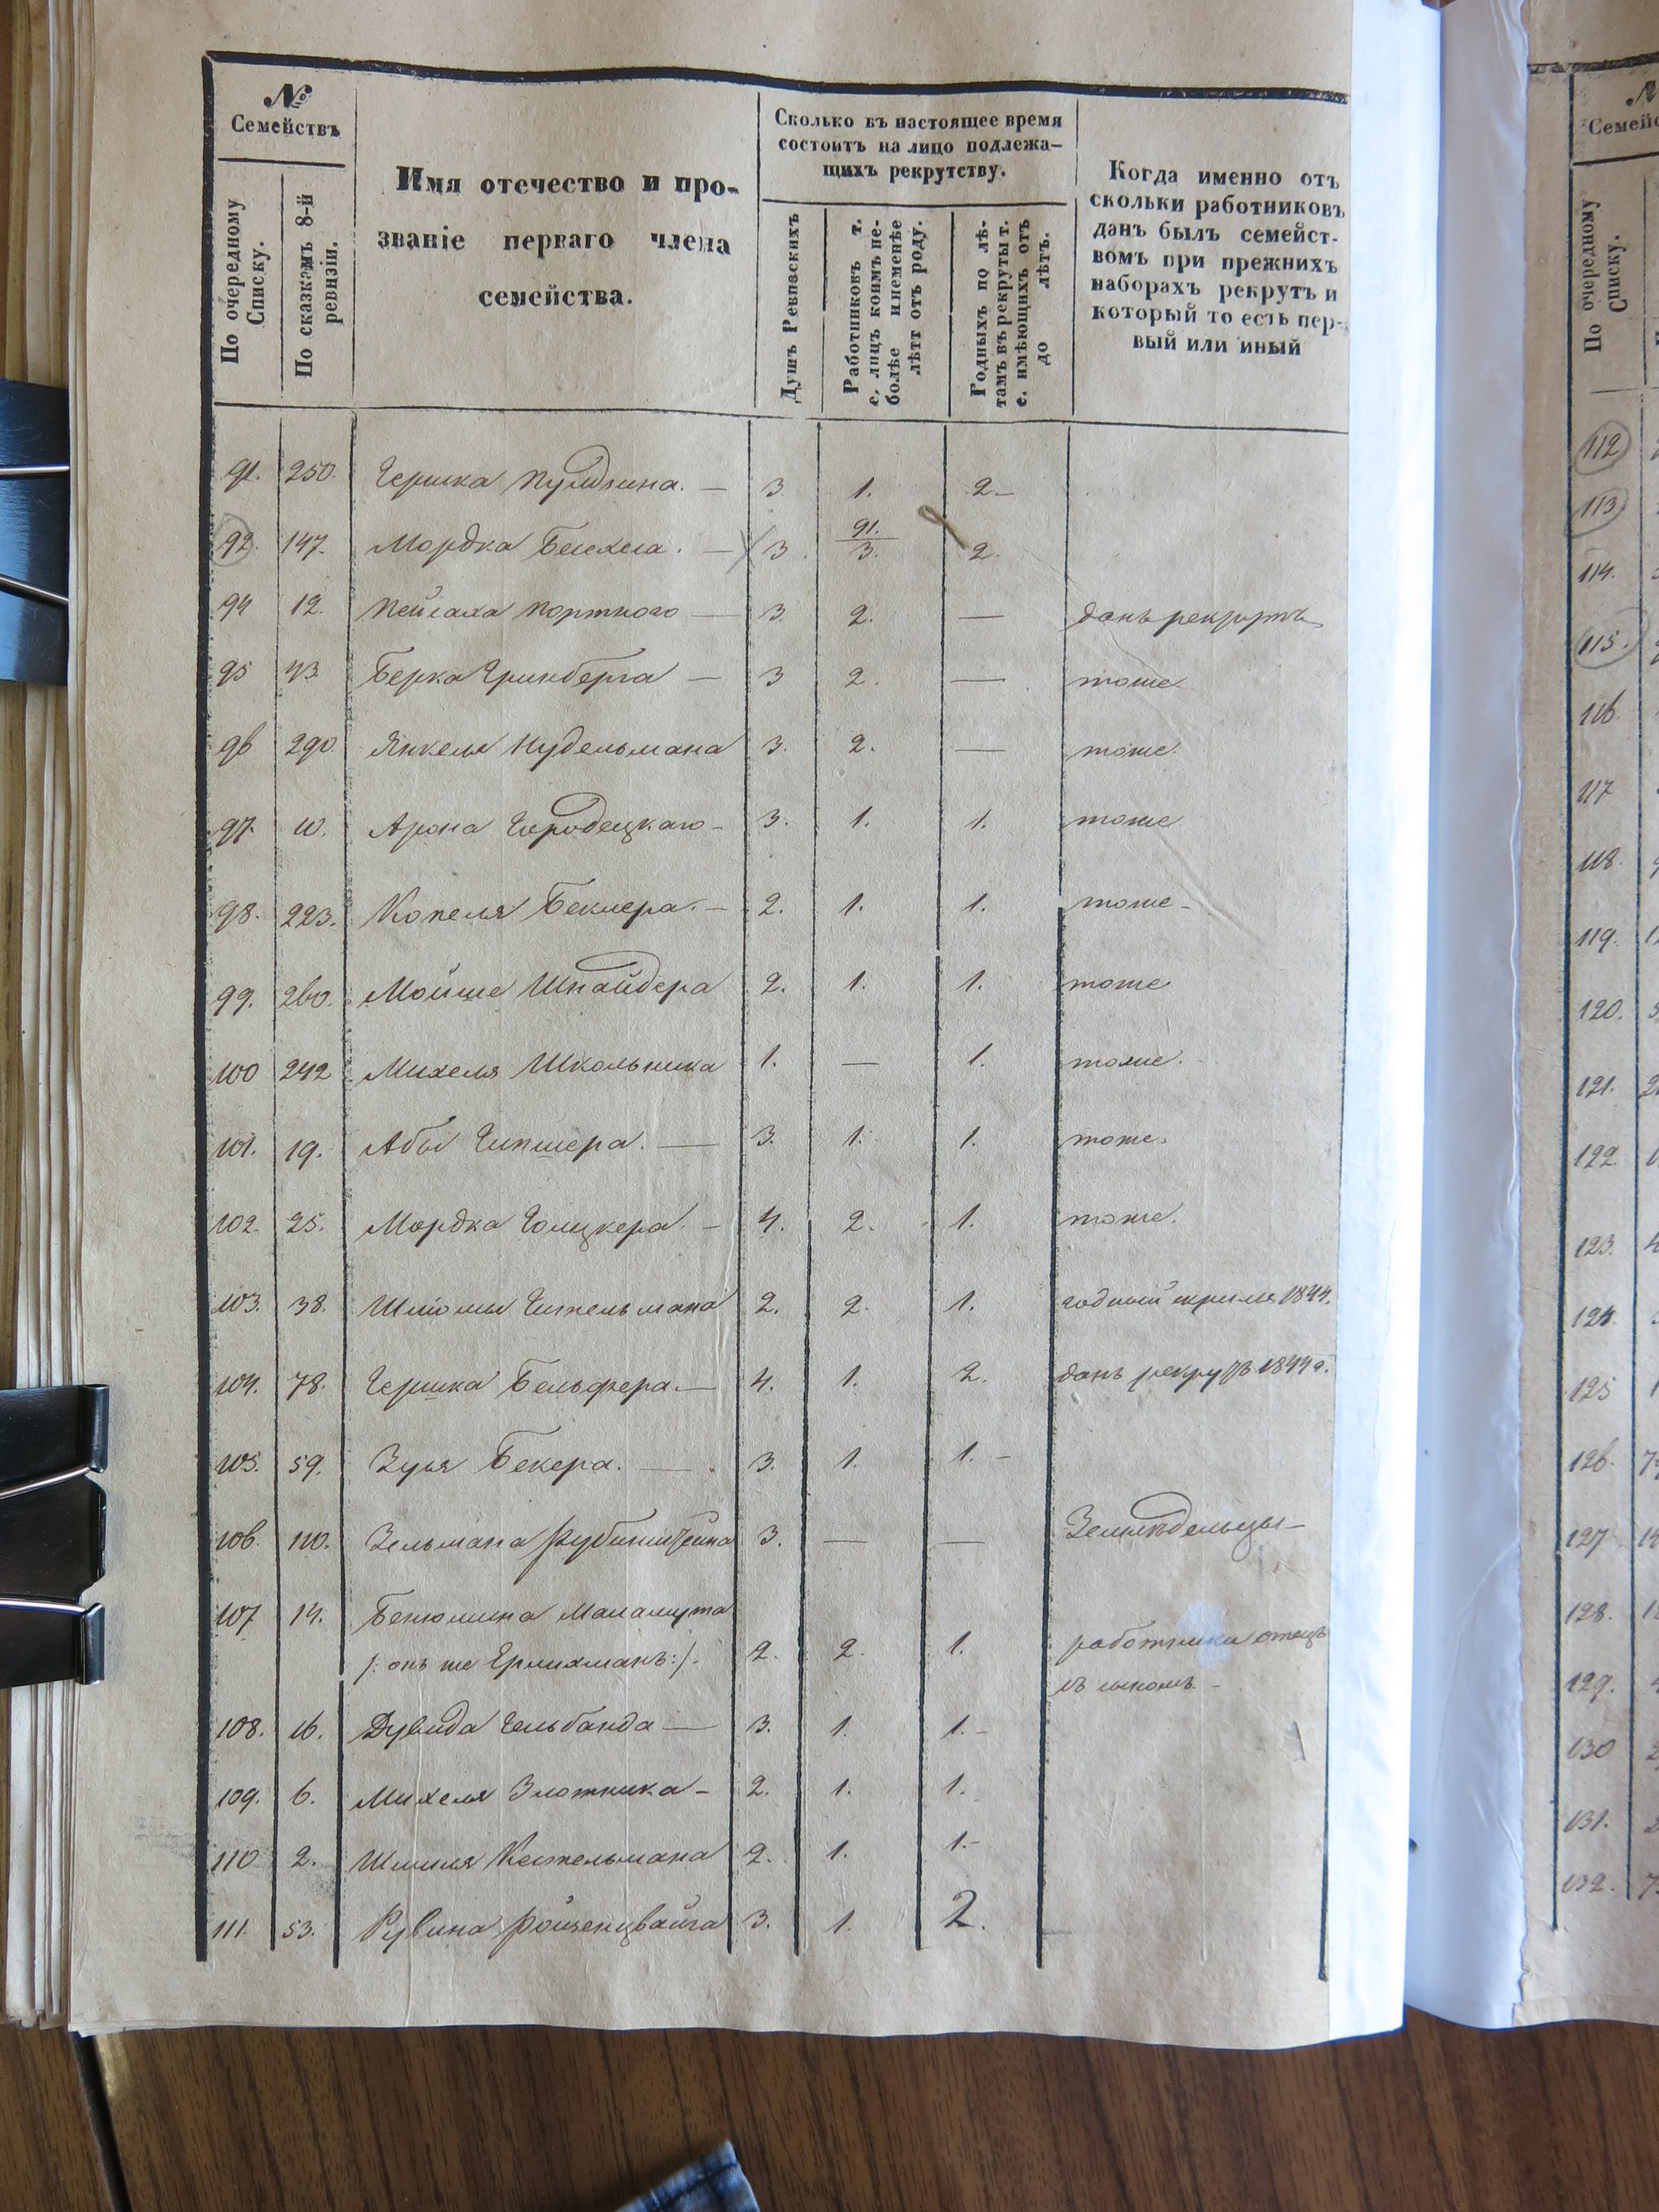 №
Семействъ
По очередному
Списку.
По сказкамъ 8-й
ревизіи.
Имя отечество и про-
званіе перваго члена
семейства.
Сколько въ настоящее время
состоитъ на лицо подлежа-
щихъ рекрутству.
Душъ Ревизскихъ
Работниковъ т.
е. лицъ коимъ не-
болѣе и неменѣе
лѣтт отъ роду.
Годныхъ по лѣ-
тамъ въ рекруты т.
е. имѣющихъ отъ
до лѣтъ.
Когда именно отъ
скольки работниковъ
данъ былъ семейст-
вомъ при прежнихъ
наборахъ рекрутъ и
который то есть пер-
вый или иный
91. 250. Гершка 3. 1. 2.
92. 147. Мордка 3. 91. 3. 2.
94 12. Пейсаха Портного — 3. 2. — данъ рекрутъ
95 43 Берка Гринберга — 3 2. — тоже.
96 290. Янкеля Нудельмана 3. 2. — тоже.
97. 10. Арона Городецкаго - 3. 1. 1. тоже
98. 223. Копеля Беклера. — 2. 1. 1. тоже -
99. 260. Мойше Шнайдера 2. 1. 1. тоже
100 242 Михеля Школьника 1. — 1. тоже.
101. 19. Абы 3. 1. 1. тоже.
102. 25. Мордка Голицкера. — 4. 2. 1. тоже.
103. 38. Шломы Гительмана 2. 2. 1. 1844.
104. 78. Гершка Бельфера. — 4. 1. 2. данъ рекрутъ 1844 г.
105. 59. Зуся Бекера. — 3. 1. 1. -
106. 110. Зельмана Рубинштейна 3. — — Земледельцы —
107 14. Бенюмина Маламута
/: онъ же Ерлихманъ :/. 2. 2. 1. работника отецъ
съ сыномъ. -
108. 16. Дувида Гельбанда — 3. 1. 1. -
109. 6. Михеля Злотника - 2. 1. 1.
110 2. Шмиля Кестельмана 2. 1. 1. -
111. 53. Рувина Ройзенцвайга 3. 1. 2.
№
По очередному
Списку.
112
113
114.
115.
116
117
118.
119.
120.
121.
122.
123.
124.
125
126.
127
128.
129.
130
131.
132.